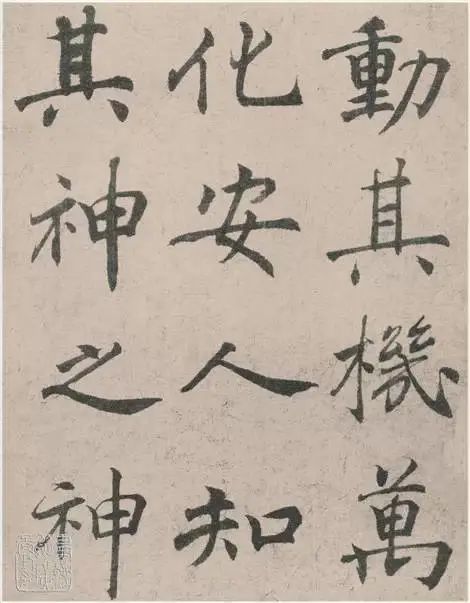 動其機萬
化安人知
其神之神